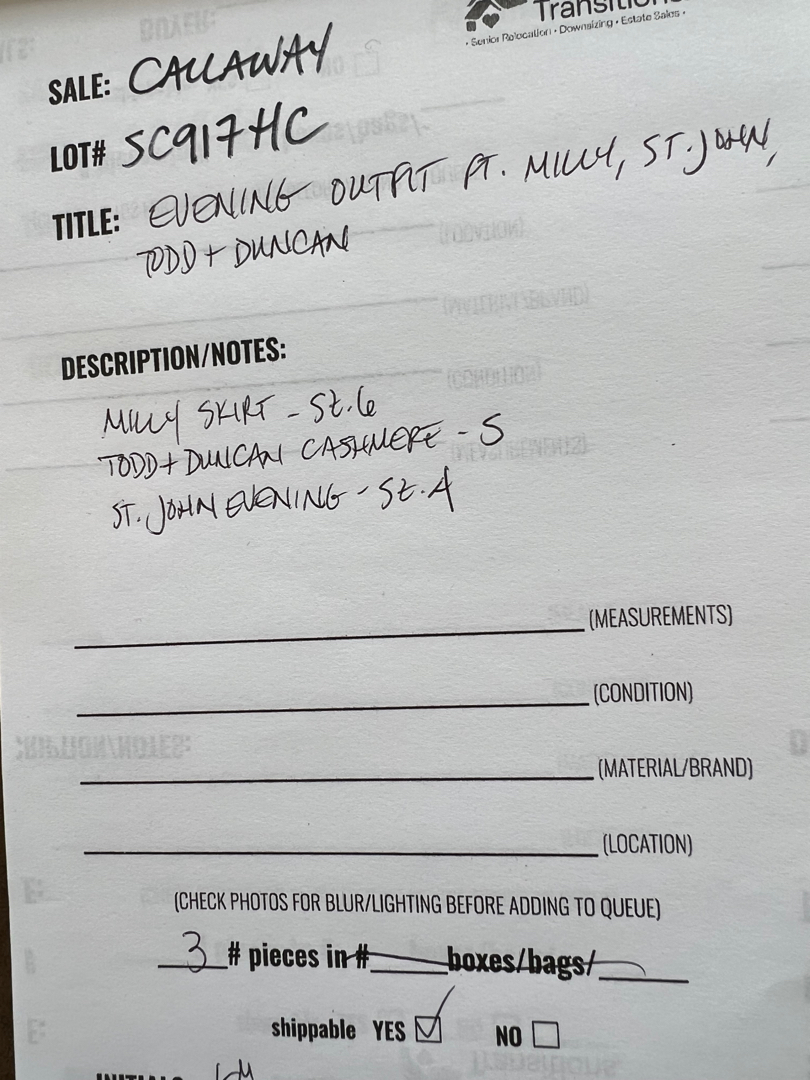 Transitions
· Senior Relocation · Downsizing · Estate Sales ·
SALE: CALLAWAY
LOT# SC917HC
TITLE: EVENING OUTFIT FT. MILLY, ST. JOHN,
TODD + DUNCAN
DESCRIPTION/NOTES:
MILLY SKIRT - SZ. 6
TODD + DUNCAN CASHMERE - S
ST. JOHN EVENING - SZ. 4
(MEASUREMENTS)
(CONDITION)
(MATERIAL/BRAND)
(LOCATION)
(CHECK PHOTOS FOR BLUR/LIGHTING BEFORE ADDING TO QUEUE)
3 # pieces in # boxes/bags/
shippable YES ☑ NO ☐
INITIALS